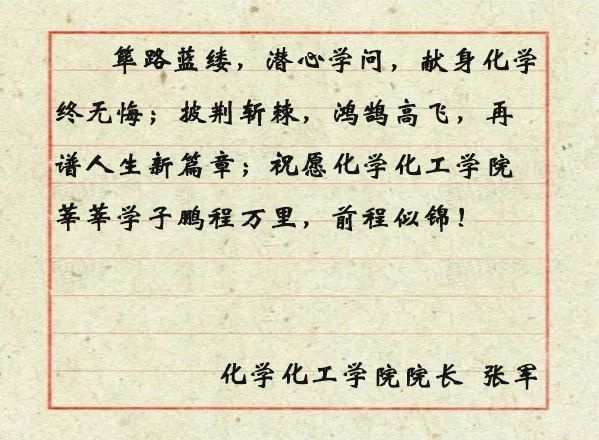 筚路蓝缕，潜心学问，献身化学
终无悔；披荆斩棘，鸿鹄高飞，再
谱人生新篇章；祝愿化学化工学院
莘莘学子鹏程万里，前程似锦！
化学化工学院院长 张军